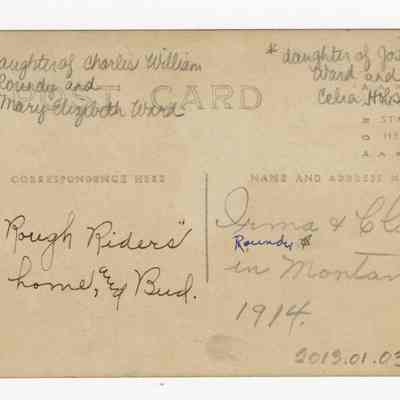 daughter of Charles William
Roundy and
Mary Elizabeth Ward
* daughter of
Ward and
Celia
POST CARD
CORRESPONDENCE HERE
NAME AND ADDRESS
"Rough Riders"
home, and Bud.
Irma &
Roundy *
in Montan
1914.
2013.01.03